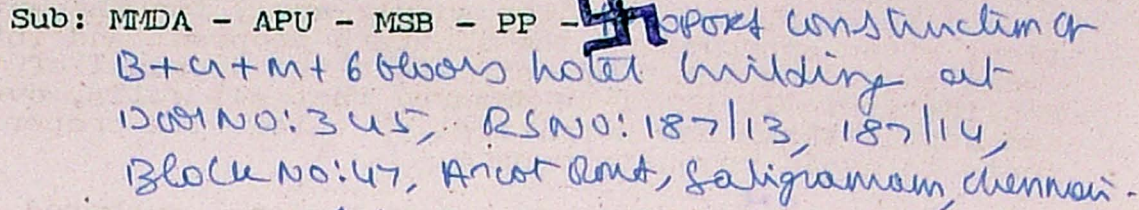 Sub: MMDA - APU - MSB - PP - construction of
B+G+M+6 floors hotel building at
Door NO: 345, RS NO: 187/13, 187/14,
Block NO: 47, Arcot Road, Saligramam, Chennai.